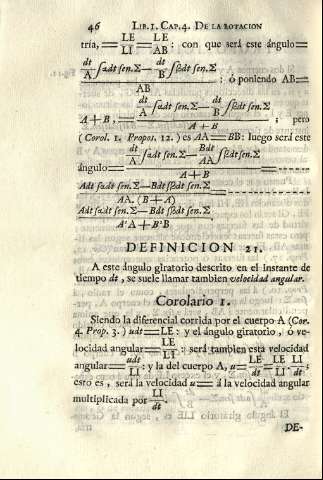 46 LIB.I. CAP.4. DE LA ROTACION
tría, LE/LI = LE/AB : con que será este ángulo =
dt/A ∫αdt sen.Σ — dt/B ∫ϐdt sen.Σ / AB : ó poniendo AB =
A+B, = dt/A ∫αdt sen.Σ — dt/B ∫ϐdt sen.Σ / A+B ; pero
( Corol. 1. Propos. 12. ) es AA = BB: luego será este
ángulo = dt/A ∫αdt sen.Σ — Bdt/AA ∫ϐdt sen.Σ / A+B =
Adt ∫αdt sen.Σ — Bdt ∫ϐdt sen.Σ / AA. (B+A) =
Adt ∫αdt sen.Σ — Bdt ∫ϐdt sen.Σ / A²A+B²B .
DEFINICION 21.
A este ángulo giratorio descrito en el instante de
tiempo dt, se suele llamar tambien velocidad angular.
Corolario 1.
Siendo la diferencial corrida por el cuerpo A (Cor.
4. Prop. 3. ) udt = LE: y el ángulo giratorio, ó ve-
locidad angular = LE/LI : será tambien esta velocidad
angular = udt/LI : y la del cuerpo A, u = LE/dt = LE/LI . LI/dt :
esto es, será la velocidad u = á la velocidad angular
multiplicada por LI/dt .
DE-